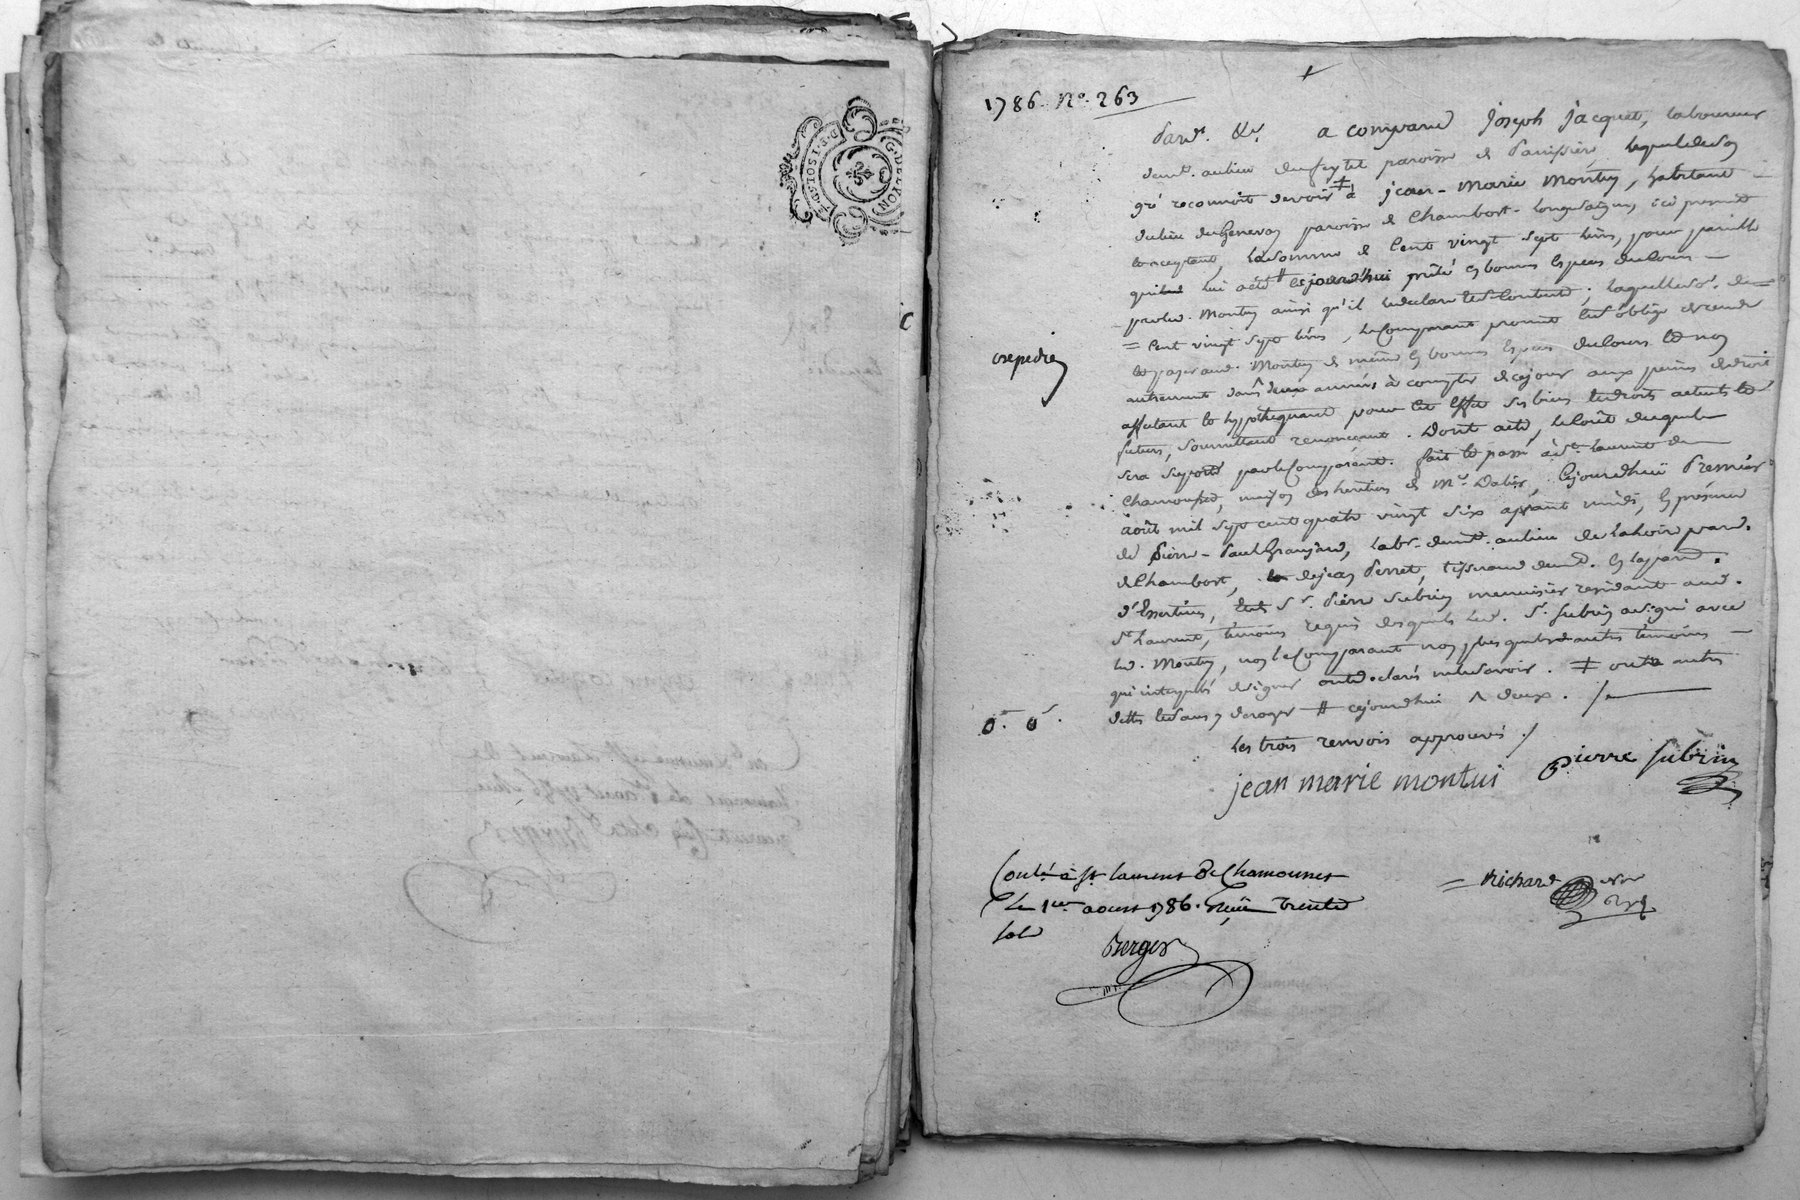 G. DE LYON
2 S
1786. N°. 263
Pard.t &c. a comparu Joseph Jacquet, laboureur
demt. au lieu du feytet paroisse de Panissière, lequel de son
gré reconnoit devoir ‡ à Jean-Marie Montuy, habitant
du lieu du Genevay paroisse de Chambost-Longessaigne, ici present
et acceptant, la somme de Cent vingt sept livres, pour pareille
qui lui a été # cejourd'hui prêté en bonnes especes de cours
par led. Montuy ainsi qu'il le declare et s'en contente; laquelle so.e de
= Cent vingt sept livres, le Comparant promet et s'oblige de rendre
et payer aud. Montuy de même en bonnes especes de cours et non
autrement dans ^ deux années à compter de ce jour aux peines de droit
affectant et hypothequant pour cet effet ses biens et droits actuels et
futurs, soumettant renonceant. Dont acte, le Coût duquel
sera suporté par le Comparant. fait et passé à St. Laurent de
Chamousset, maison des heritiers de Mr. Dalin, Cejourdhui Premier
août mil sept cent quatre vingt six avant midi, En présence
de Pierre-Paul Granjard, labr. demt. au lieu de Lahoire par.
de Chambost, de jean Perret, tisserand demt. En la par.
d'Essertines, Et de Sr. Pierre Subrin menuisier residant aud.
St. Laurent, temoins requis desquels led. Sr. Subrin a signé avec
led. Montuy, non le Comparant non plus que les autres temoins
qui interpellés de signer ont declaré ne le savoir. ‡ outre autres
dettes et sans y deroger # cejourdhui ^ deux. /
expedié
Les trois renvois approuvés ./
jean marie montui
Pierre subrin
Conlé à St. Laurent De Chamousset
Le 1er aoust 1786. Reçu Trente
sols
Berger
= Richard